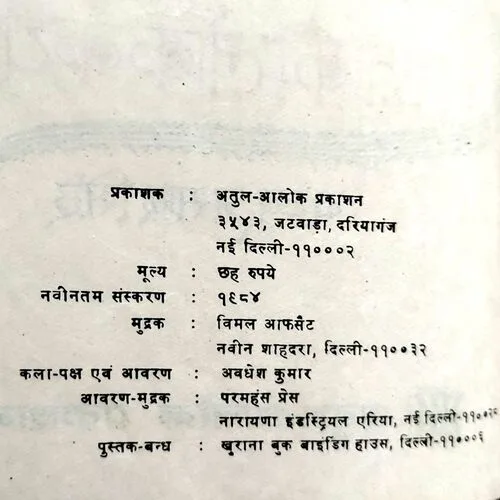 प्रकाशक : अतुल-आलोक प्रकाशन
३५४३, जटवाड़ा, दरियागंज
नई दिल्ली-११०००२
मूल्य : छह रुपये
नवीनतम संस्करण : १९८४
मुद्रक : विमल आफसैट
नवीन शाहदरा, दिल्ली-११००३२
कला-पक्ष एवं आवरण : अवधेश कुमार
आवरण-मुद्रक : परमहंस प्रेस
नारायणा इंडस्ट्रियल एरिया, नई दिल्ली-११००२८
पुस्तक-बन्ध : खुराना बुक बाइंडिंग हाउस, दिल्ली-११०००६